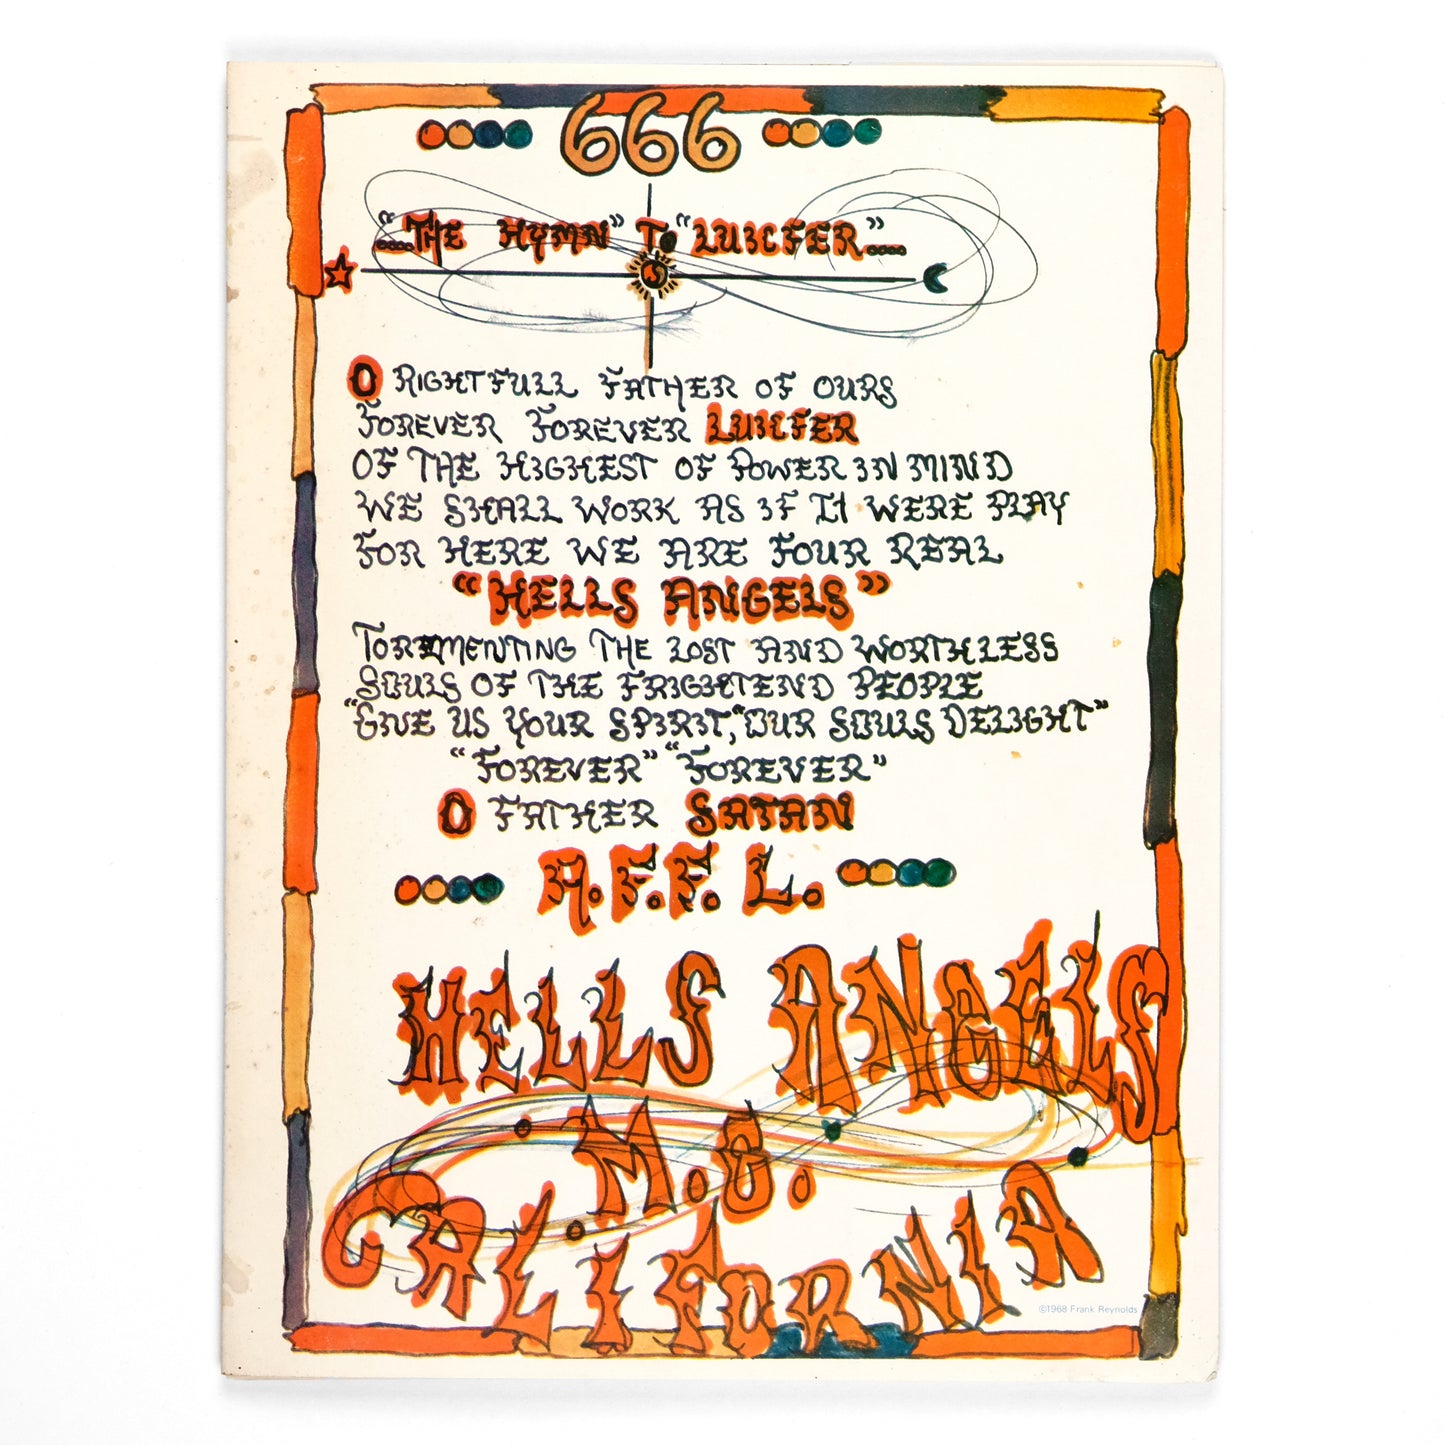 666
...."THE HYMN" TO "LUICFER"....
O RIGHTFULL FATHER OF OURS
FOREVER FOREVER LUICFER
OF THE HIGHEST OF POWER IN MIND
WE SHALL WORK AS IF IT WERE PLAY
FOR HERE WE ARE FOUR REAL
"HELLS ANGELS"
TOREMENTING THE LOST AND WORTHLESS
SOULS OF THE FRIGHTEND PEOPLE
"GIVE US YOUR SPIRIT, "OUR SOULS DELIGHT"
"FOREVER" "FOREVER"
O FATHER SATAN
A.F.F. L.
HELLS ANGELS
.M.C.
CALIFORNIA
©1968 Frank Reynolds